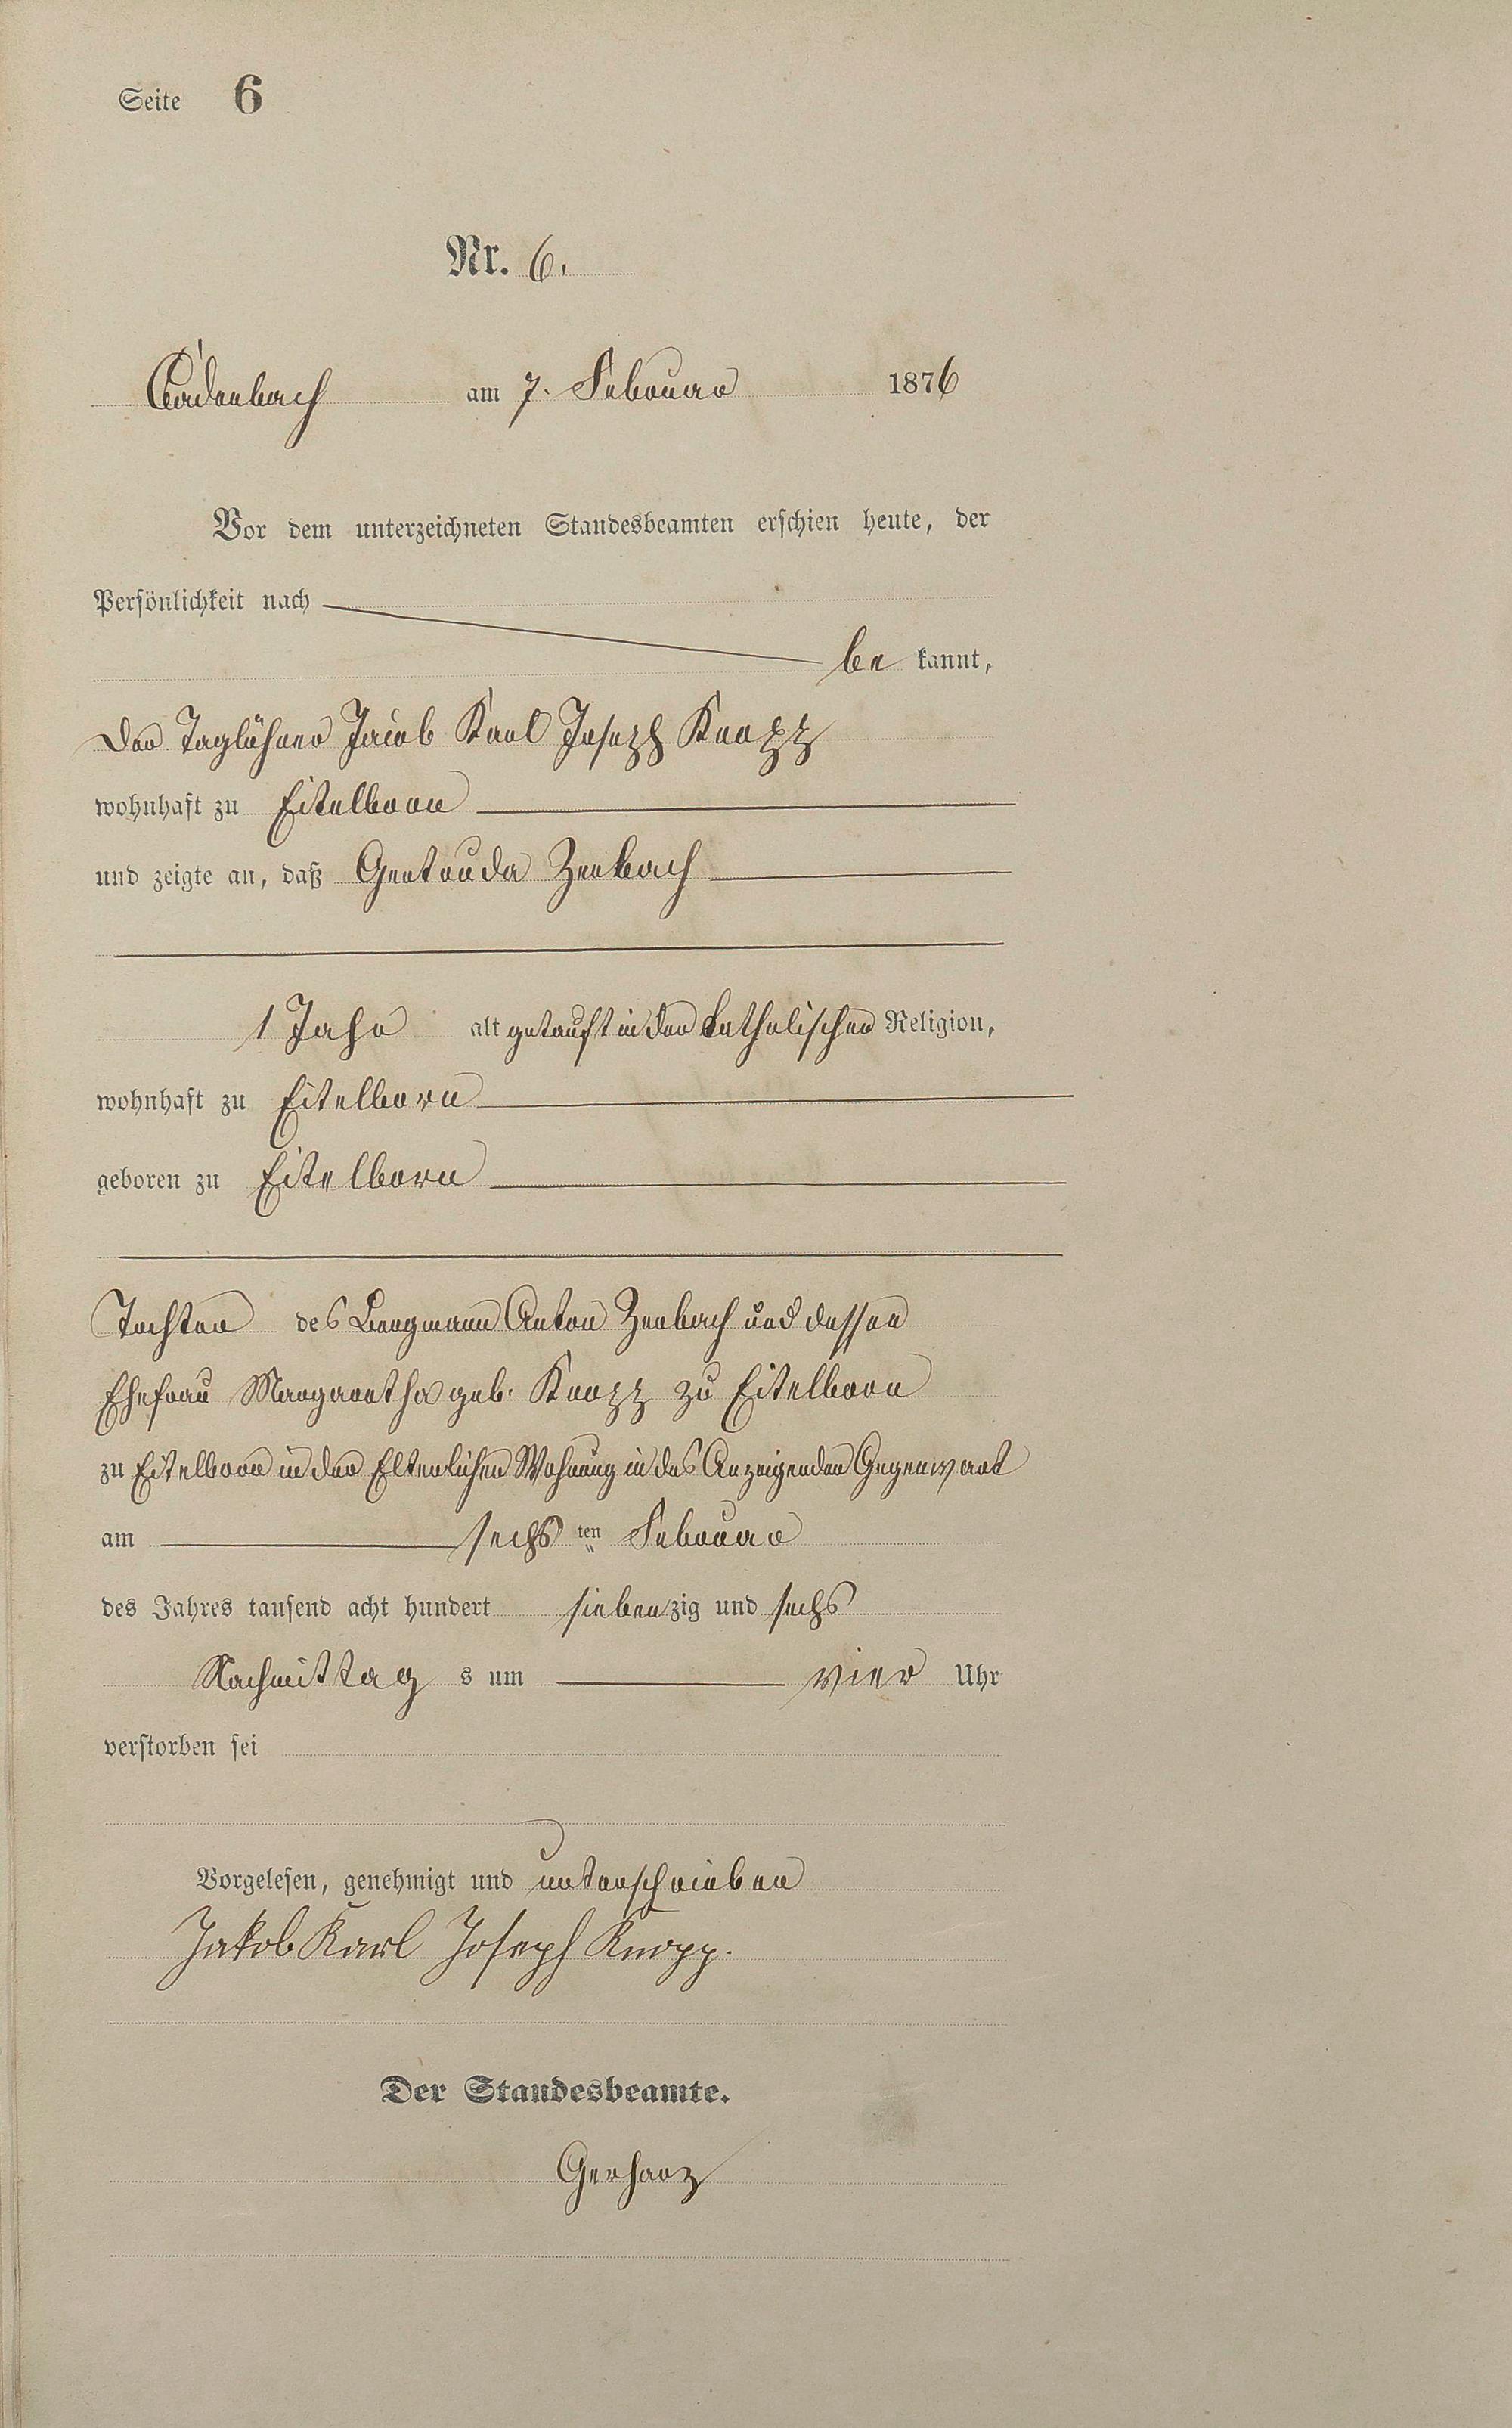 Seite 6
Nr. 6.
Cadenbach am 7. Februar 1876
Vor dem unterzeichneten Standesbeamten erschien heute, der
Persönlichkeit nach
be kannt,
der Taglöhner Jacob Karl Joseph Knopp
wohnhaft zu Eitelborn
und zeigte an, daß Gertruda Zerbach
1 Jahr alt getauft in der katholischen Religion,
wohnhaft zu Eitelborn
geboren zu Eitelborn
Tochter des Bergmann Anton Zerbach und dessen
Ehefrau Margaretha geb. Knopp zu Eitelborn
zu Eitelborn in der Elterlichen Wohnung in des Anzeigenden Gegenwart
am sechs ten Februar
des Jahres tausend acht hundert siebenzig und sechs
Nachmittag s um vier Uhr
verstorben sei
Vorgelesen, genehmigt und unterschrieben
Jakob Karl Joseph Knopp.
Der Standesbeamte.
Gerharz